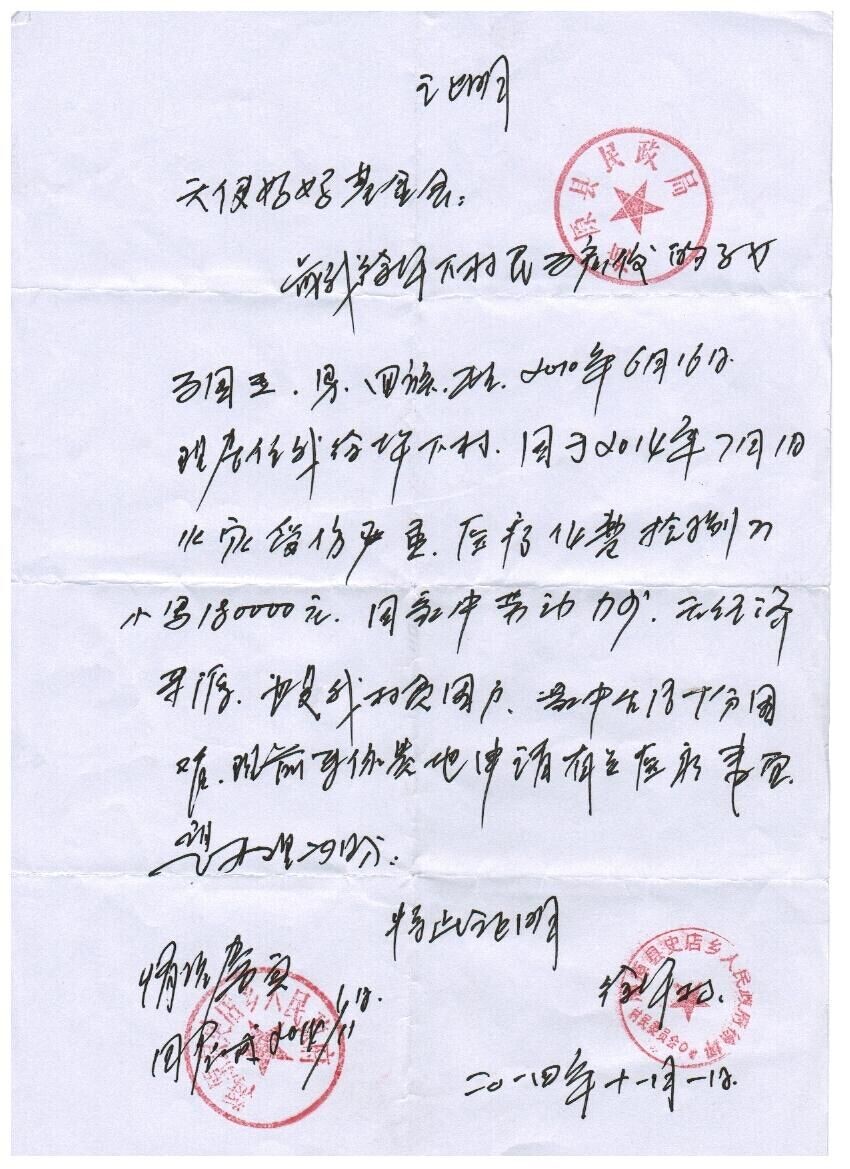 证明
县民政局
天使妈妈基金会:
前我徐坪下村民 的子女
国 . 男. 回族. 生. 2010年6月16日.
现居住我徐坪下村. 因于2014年7月1日
火灾 伤严重. 医疗化费
小写180000元. 因家中劳动力少. 无经济
来源. 也是我村贫困户. 家中生活十分困
难. 现前来你 地申请有关医疗事宜.
望 办理 .
特此证明
情况属实
同 2014 11
县史店乡人民政府徐坪
村民委员会
徐坪村.
二〇一四年十一月一日.